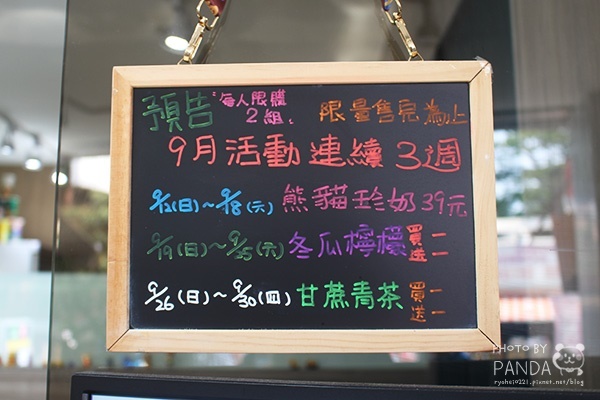 預告 "每人限購2組" 限量售完為止
9月活動連續3週
9/12(日)~9/18(六) 熊貓珍奶39元
9/19(日)~9/25(六) 冬瓜檸檬 買一送一
9/26(日)~9/30(四) 甘蔗青茶 買一送一
PHOTO BY
PANDA
ryohei0221.pixnet.net/blog